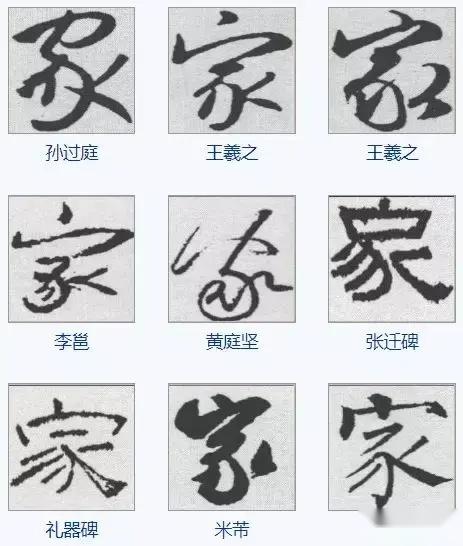 家 家 家
孙过庭 王羲之 王羲之
家 家 家
李邕 黄庭坚 张迁碑
家 家 家
礼器碑 米芾